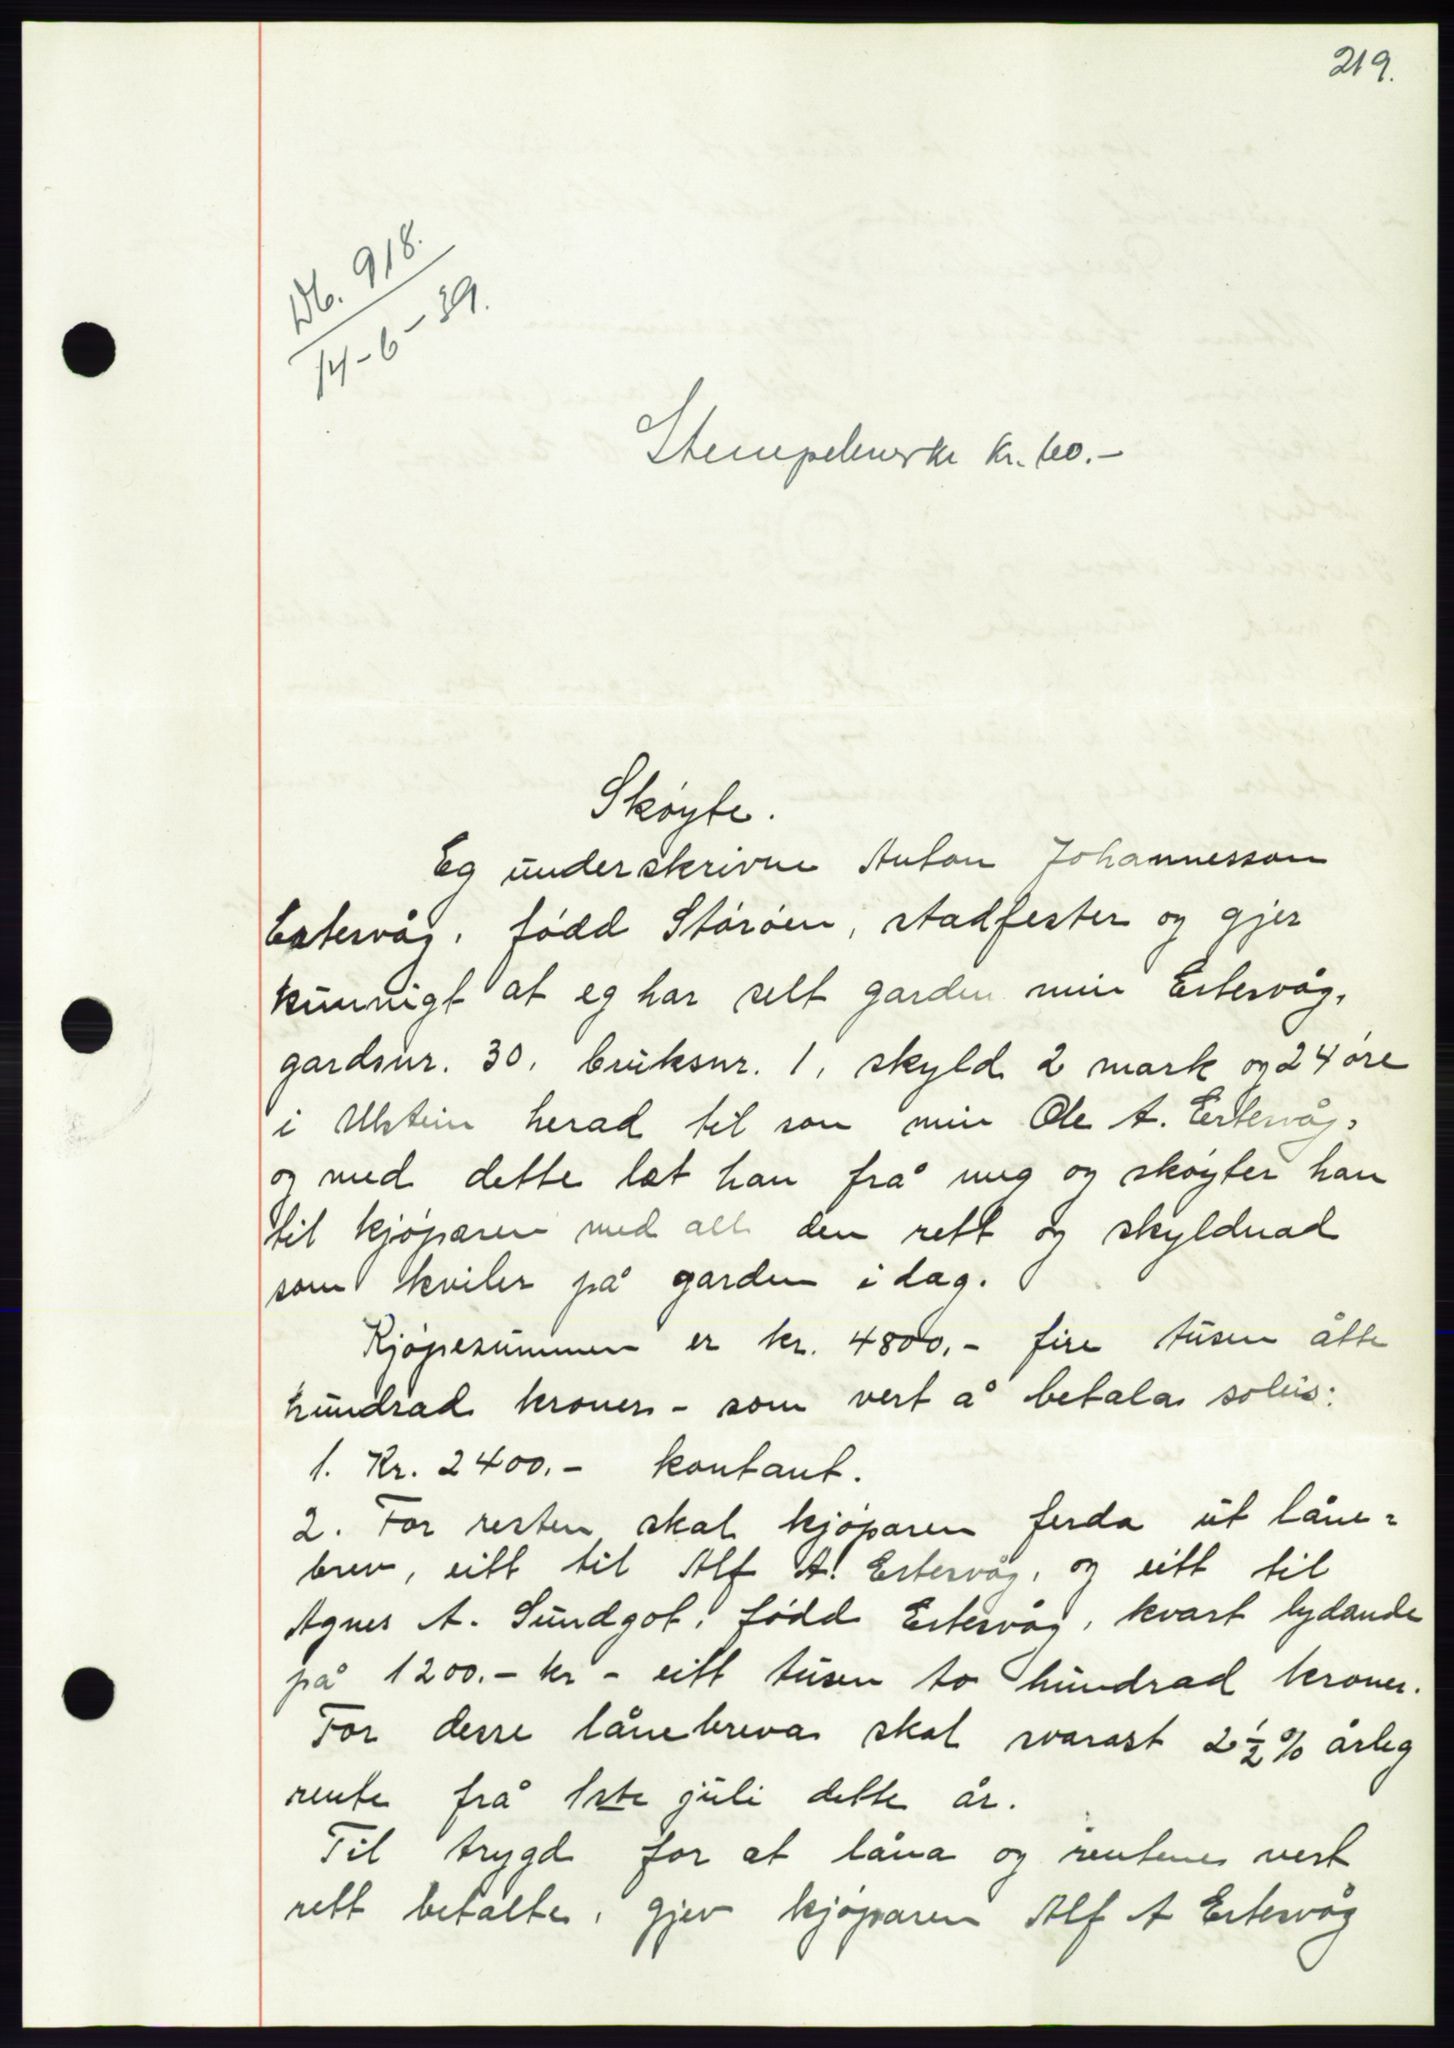 219.
Db. 918.
14-6-39.
Stempelmerke kr. 60.-
Skøyte.
Eg underskrivne Anton Johannesson
Estersvåg, fødd Störöen, stadfester og gjer
kunnigt at eg har selt garden min Estersvåg,
gardsnr. 30, bruksnr. 1, skyld 2 mark og 24 øre
i Ulstein herad til son min Ole A. Estersvåg,
og med dette læt han frå meg og skøyter han
til kjøparen med all den rett og skyldnad
som kviler på garden idag.
Kjøpesummen er kr. 4800.- fire tusen åtte
hundrad kroner - som vert å betala solus:
1. Kr. 2400.- kontant.
2. For resten skal kjøparen ferda ut låne=
brev, eitt til Alf A. Estersvåg, og eitt til
Agnes A. Sundgot, fødd Estersvåg, kvart lydande
på 1200.- kr - eitt tusen to hundrad kroner.
For desse lånebreva skal svarast 2½% årleg
rente frå 1ste juli dette år.
Til trygd for at låna og rentene vert
rett betalte, gjev kjøparen Alf A Estersvåg